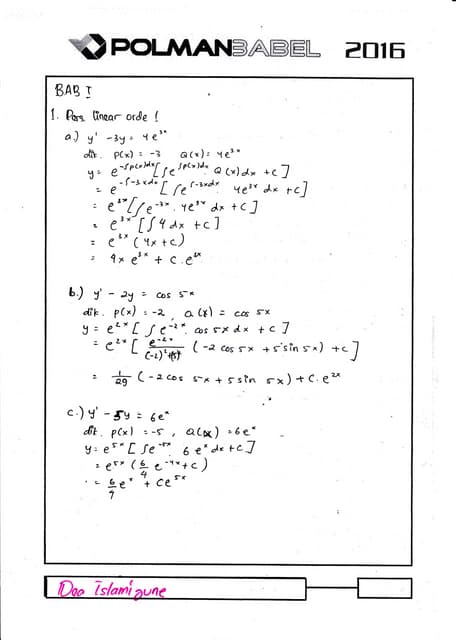 POLMANBABEL 2016
BAB I
1. Pers linear orde 1
a.) y' - 3y = 4e^3x
dik. P(x) = -3 Q(x) = 4e^3x
y = e^-∫p(x)dx [∫e^∫p(x)dx . Q(x) dx + c]
= e^-∫-3xdx [∫e^∫-3xdx 4e^3x dx + c]
= e^3x [∫e^-3x . 4e^3x dx + c]
= e^3x [∫4 dx + c]
= e^3x (4x + c)
= 4x e^3x + c . e^3x
b.) y' - 2y = cos 5x
dik. P(x) = -2, Q(x) = cos 5x
y = e^2x [∫e^-2x . cos 5x dx + c]
= e^2x [e^-2x/((-2)²+(5)²) (-2 cos 5x + 5 sin 5x) + c]
= 1/29 (-2 cos 5x + 5 sin 5x) + C.e^2x
c.) y' - 5y = 6e^x
dit. P(x) = -5, Q(x) = 6e^x
y = e^5x [∫e^-5x 6e^x dx + c]
= e^5x (6/4 e^-4x + c)
= 6/4 e^x + ce^5x